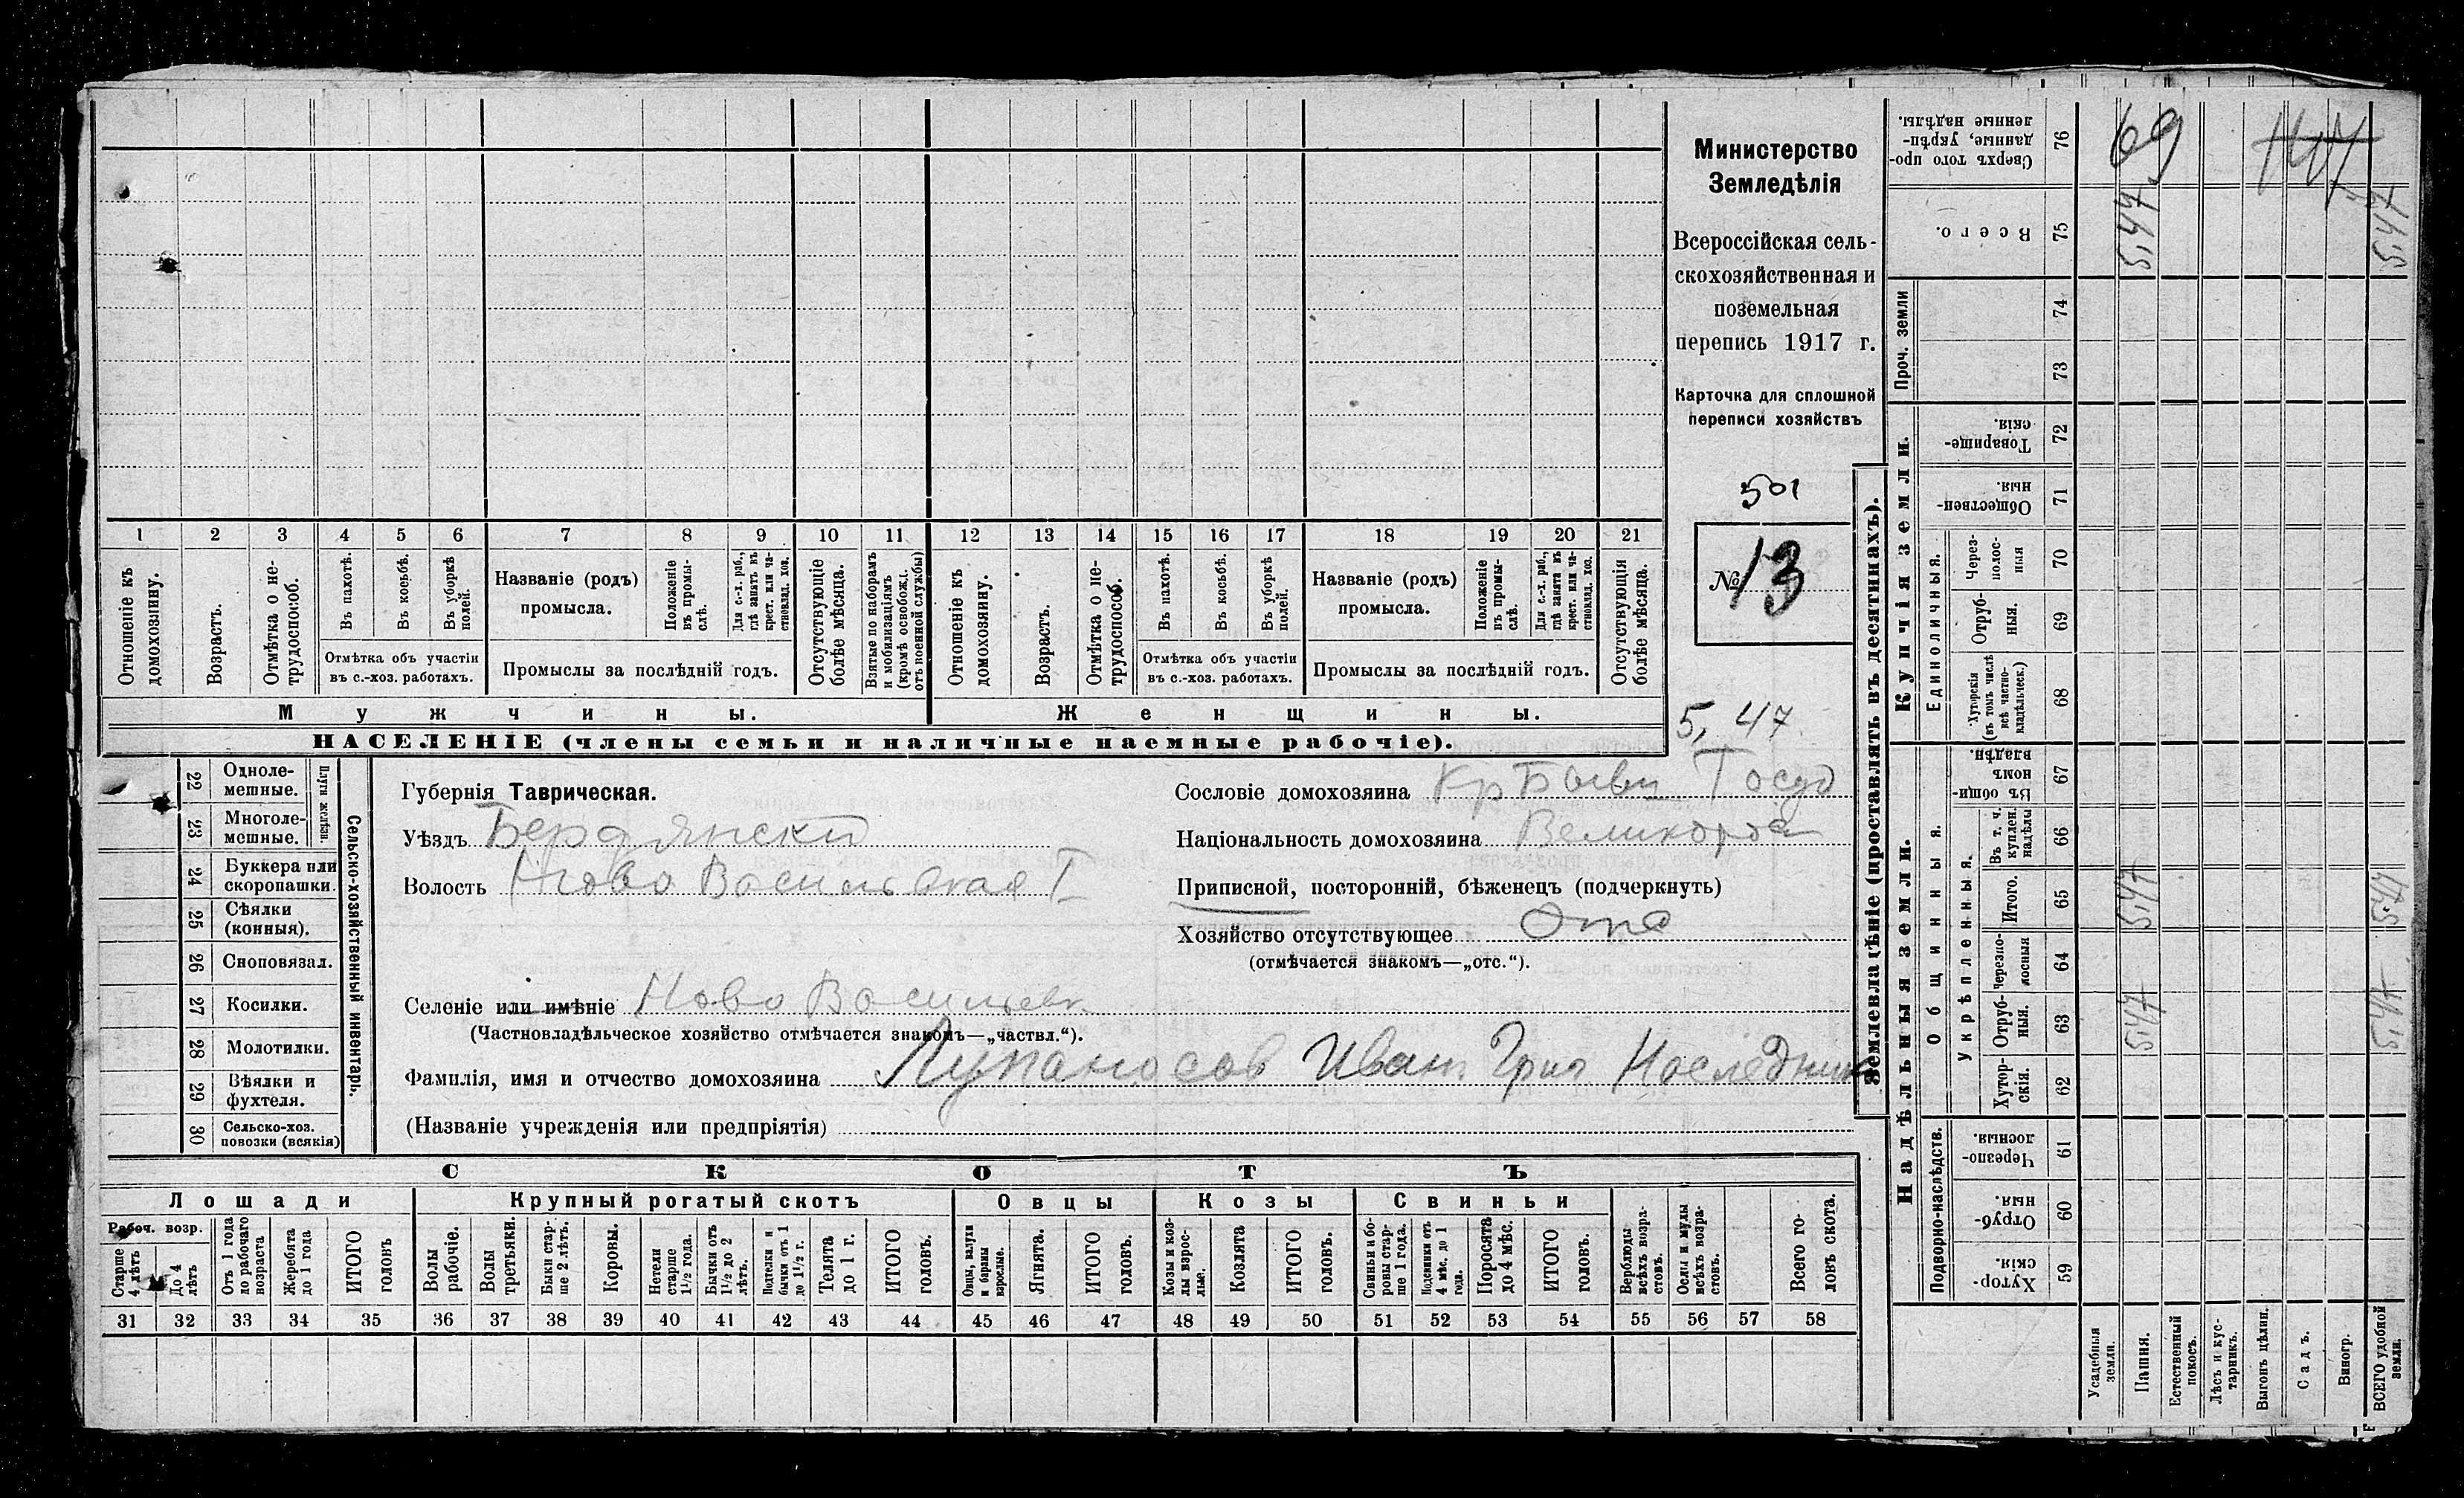 Министерство
Земледѣлія
Всероссійская сель-
скохозяйственная и
поземельная
перепись 1917 г.
Карточка для сплошной
переписи хозяйствъ
501
№ 13
5,47
1 2 3 4 5 6 7 8 9 10 11 12 13 14 15 16 17 18 19 20 21
Отношеніе къ домохозяину.
Возрастъ.
Отмѣтка о не-трудоспособ.
Въ пахотѣ.
Въ косьбѣ.
Въ уборкѣ полей.
Отмѣтка объ участіи
въ с.-хоз. работахъ.
Названіе (родъ)
промысла.
Положеніе въ промы-слѣ.
Для с.-х. раб., гдѣ занятъ въ крест. или ча-стновлад. хоз.
Промыслы за послѣдній годъ.
Отсутствующіе болѣе мѣсяца.
Взятые по наборамъ и мобилизаціямъ (кромѣ освобожд. отъ военной службы)
Отношеніе къ домохозяину.
Возрастъ.
Отмѣтка о не-трудоспособ.
Въ пахотѣ.
Въ косьбѣ.
Въ уборкѣ полей.
Отмѣтка объ участіи
въ с.-хоз. работахъ.
Названіе (родъ)
промысла.
Положеніе въ промы-слѣ.
Для с.-х. раб., гдѣ занята въ крест. или ча-стновлад. хоз.
Промыслы за послѣдній годъ.
Отсутствующія болѣе мѣсяца.
Мужчины.
Женщины.
НАСЕЛЕНІЕ (члены семьи и наличные наемные рабочіе).
22 Одноле-мешные.
23 Многоле-мешные.
Плуги желѣзн.
24 Буккера или скоропашки.
25 Сѣялки (конныя).
26 Сноповязал.
27 Косилки.
28 Молотилки.
29 Вѣялки и фухтеля.
30 Сельско-хоз. повозки (всякія)
Сельско-хозяйственный инвентарь.
Губернія Таврическая.
Уѣздъ Бердянски
Волость Ново Васильевская I
Селеніе или имѣніе Ново Васильевк.
(Частновладѣльческое хозяйство отмѣчается знакомъ—„частвл.“).
Фамилія, имя и отчество домохозяина Лупаносов Иван Григ Наследник
(Названіе учрежденія или предпріятія)
Сословіе домохозяина Кр Бывш Госуд
Національность домохозяина Великорос
Приписной, посторонній, бѣженецъ (подчеркнуть)
Хозяйство отсутствующее Отс
(отмѣчается знакомъ—„отс.“).
СКОТЪ
Лошади
Крупный рогатый скотъ
Овцы
Козы
Свиньи
Рабоч. возр.
Старше 4 лѣтъ
До 4 лѣтъ
Отъ 1 года до рабочаго возраста
Жеребята до 1 года
ИТОГО головъ
Волы рабочіе.
Волы третьяки.
Быки стар-ше 2 лѣтъ.
Коровы.
Нетели старше 1½ года.
Бычки отъ 1½ до 2 лѣтъ.
Подтелки и бычки отъ 1 до 1½ г.
Телята до 1 г.
ИТОГО головъ.
Овцы, валухи и бараны взрослые.
Ягнята.
ИТОГО головъ.
Козы и коз-лы взрос-лые.
Козлята
ИТОГО головъ.
Свиньи и бо-ровы стар-ше 1 года.
Подсвинки отъ 4 мѣс. до 1 года.
Поросята до 4 мѣс.
ИТОГО головъ.
Верблюды всѣхъ возра-стовъ.
Ослы и мулы всѣхъ возра-стовъ.
Всего го-ловъ скота.
31 32 33 34 35 36 37 38 39 40 41 42 43 44 45 46 47 48 49 50 51 52 53 54 55 56 57 58
Землевладѣніе (проставлять въ десятинахъ).
Надѣльныя земли.
Купчія земли.
Проч. земли
Подворно-наслѣдств.
Общинныя.
Укрѣпленныя.
Единоличныя.
59 Хутор-скія.
60 Отруб-ныя.
61 Черезпо-лосныя.
62 Хутор-скія.
63 Отруб-ныя. 5,47 5,47
64 Черезпо-лосныя
65 Итого. 5,47 5,47
66 Въ т. ч. куплен. надѣлы
67 Въ общи-номъ владѣн.
68 Хуторскія (въ томъ числѣ всѣ частно-владѣльческ.)
69 Отруб-ныя.
70 Через-полос-ныя
71 Обществен-ныя.
72 Товарище-скія.
73
74
75 Всего. 5,47 5,47
76 Сверхъ того про-данные, укрѣп-ленные надѣлы. 69
Усадебныя земли.
Пашня.
Естественный покосъ.
Лѣсъ и кус-тарникъ.
Выгонъ цѣлин.
Садъ.
Виногр.
ВСЕГО удобной земли.